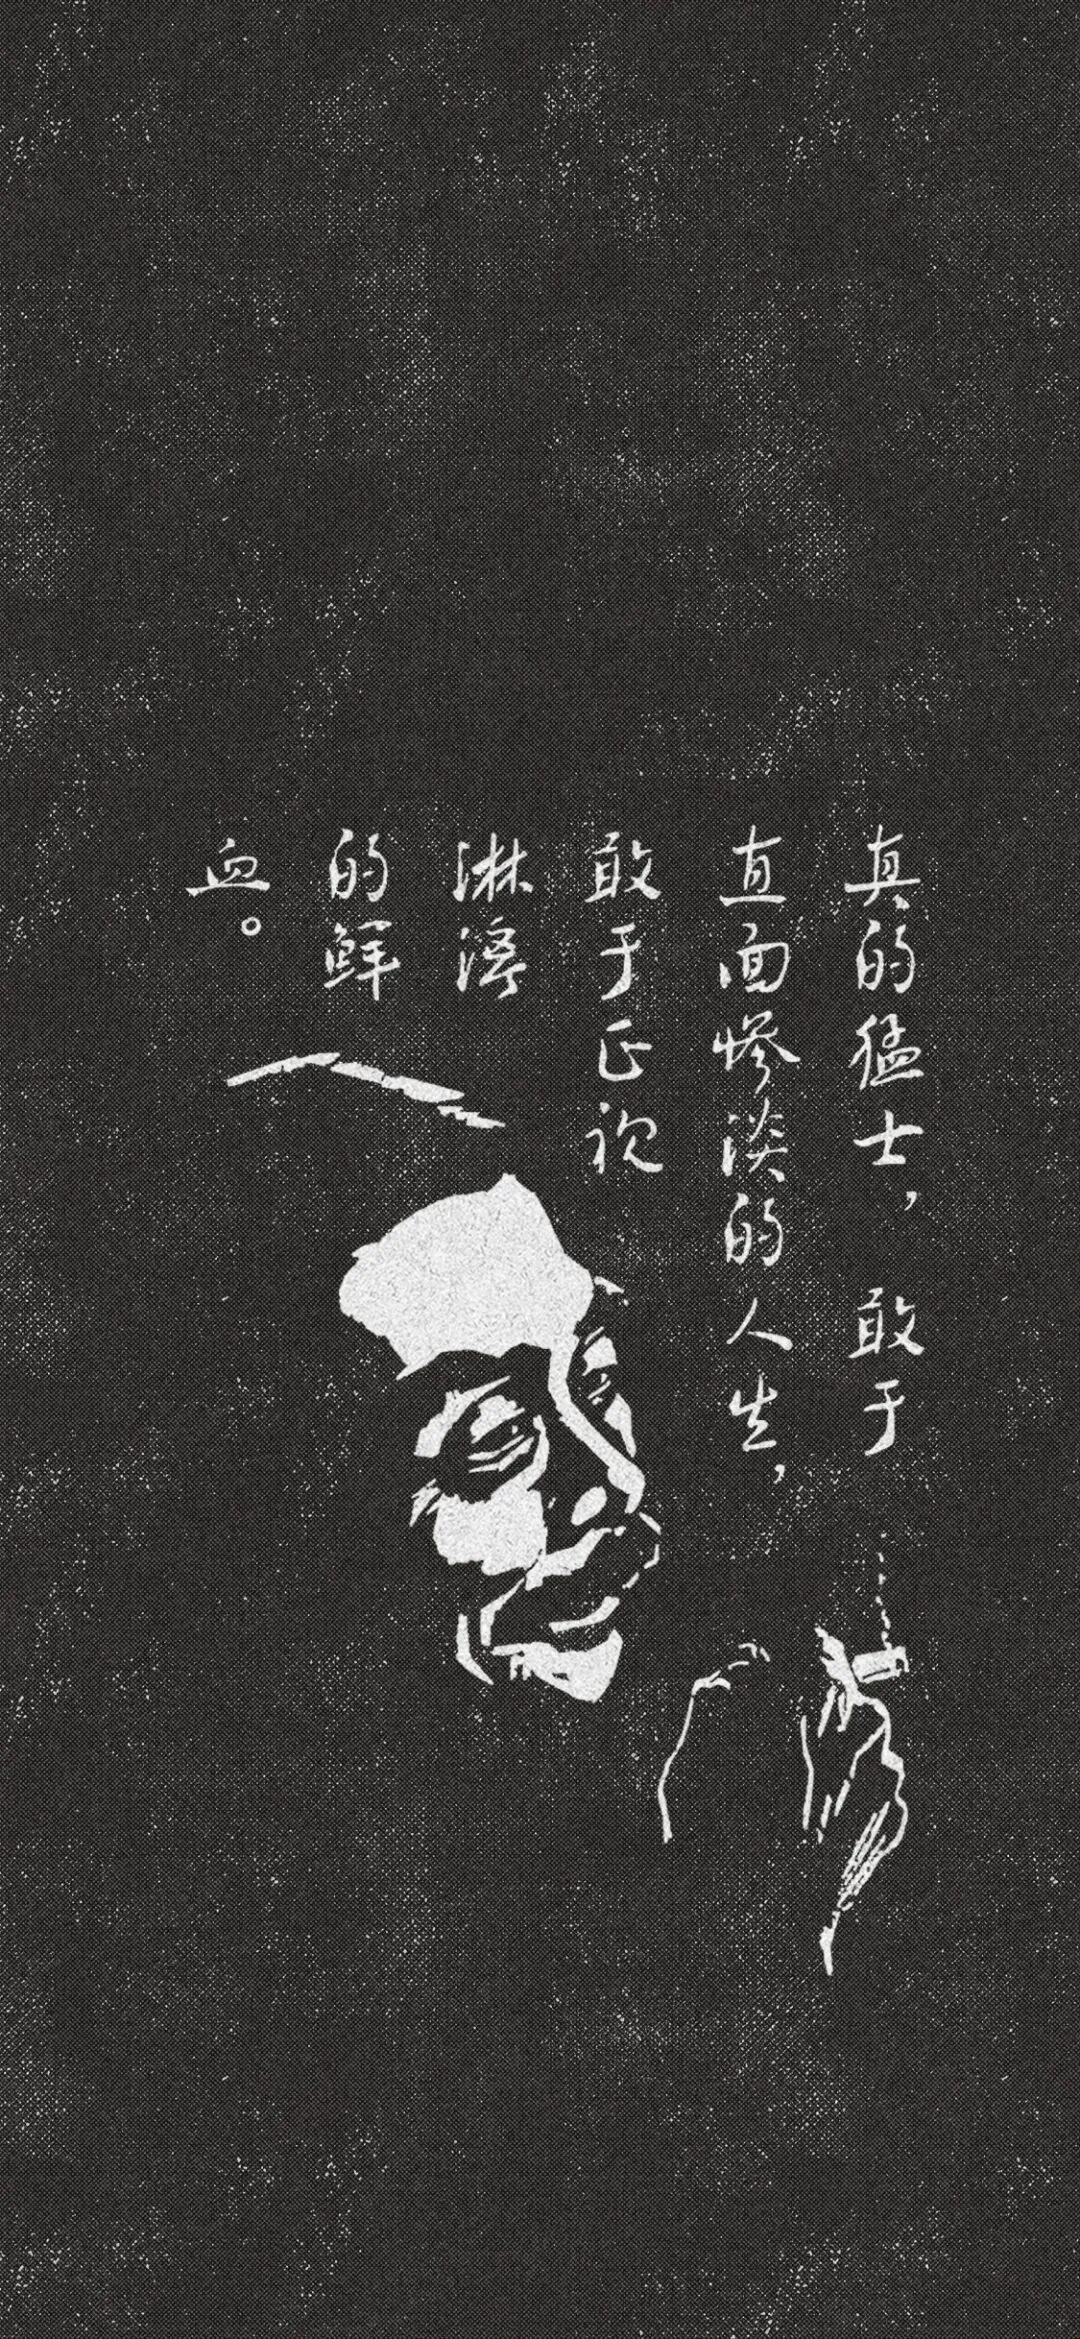 真的猛士，敢于
直面惨淡的人生，
敢于正视
淋漓
的鲜
血。